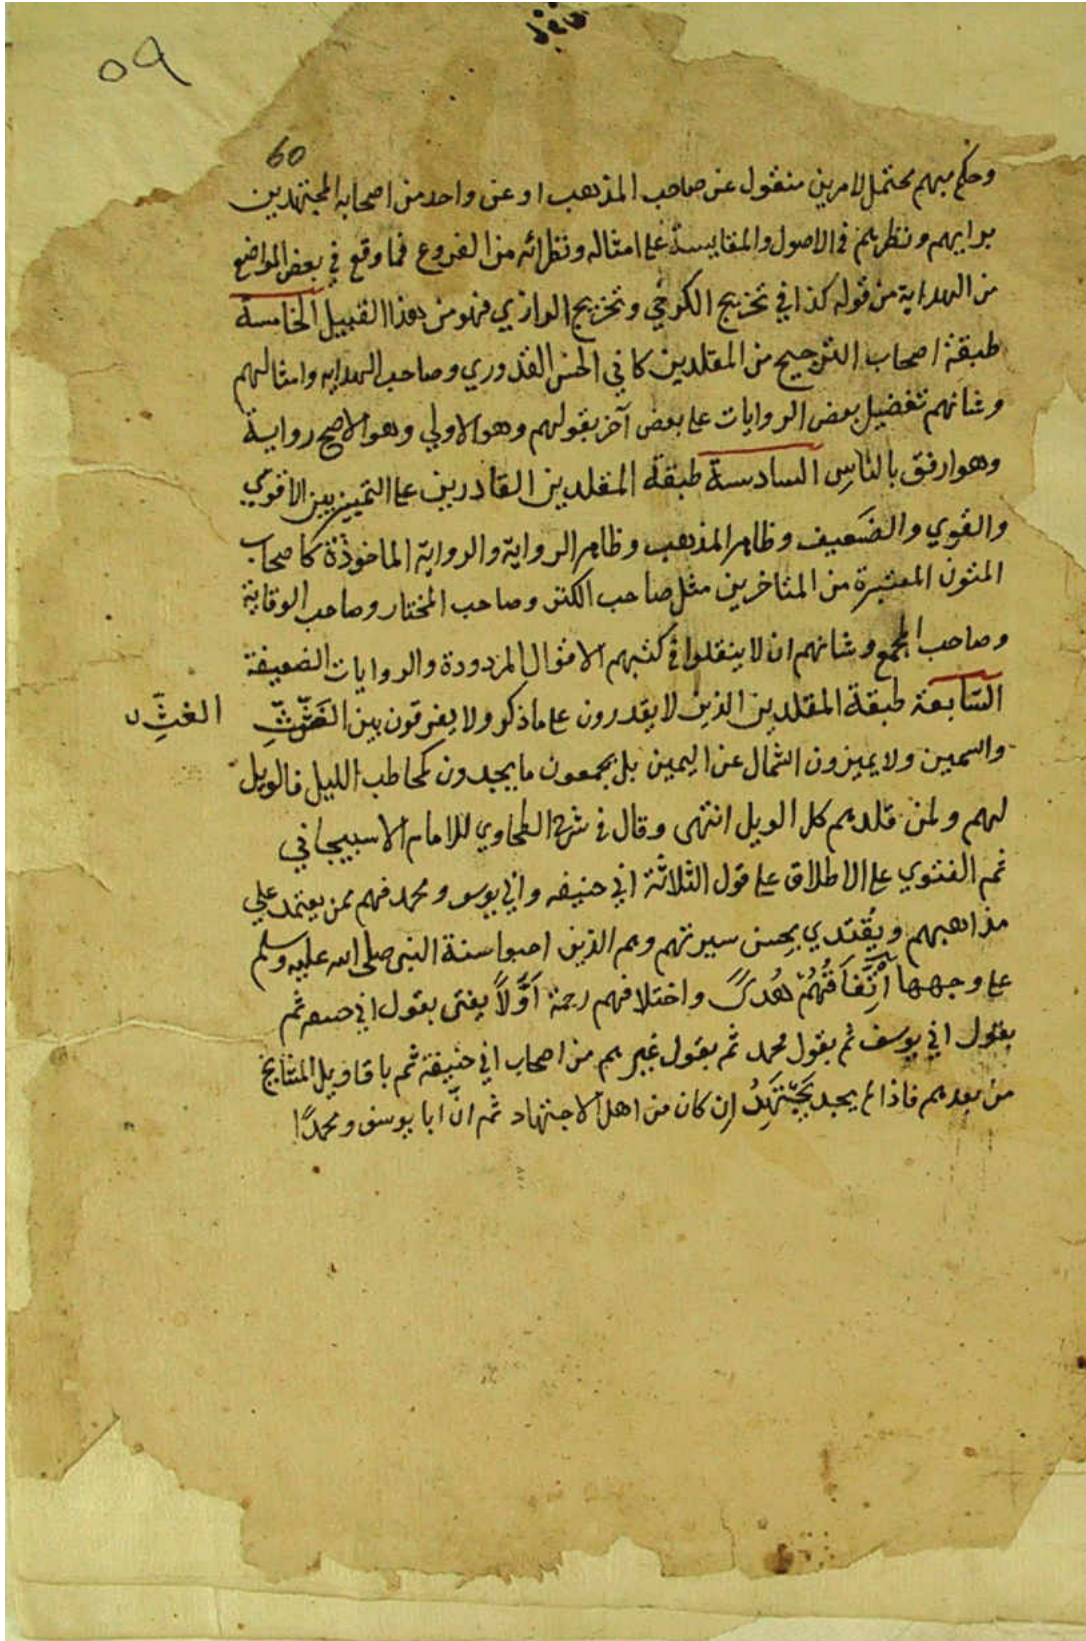 ٥٩
60
وحكم مبهم محتمل لامرين منقول عن صاحب المذهب او عن واحد من اصحابه المجتهدين
برايهم ونظرهم في الاصول والمقايسة على امثاله ونظرائه من الفروع فما وقع في بعض المواضع
من الهداية من قوله كذا في تخريج الكرخي وتخريج الرازي فهو من هذا القبيل الخامسة
طبقة اصحاب الترجيح من المقلدين كابي الحسن القدوري وصاحب الهدايه وامثالهم
وشانهم تفضيل بعض الروايات على بعض آخر بقولهم وهو الاولي وهو الاصح رواية
وهو ارفق بالناسِ السادسة طبقة المقلدين القادرين على التمييز بين الاقوي
والقوي والضَعيف وظاهر المذهب وظاهر الرواية والرواية الماخوذة كاصحاب
المتون المعتبرة من المتاخرين مثل صاحب الكنز وصاحب المختار وصاحب الوقاية
وصاحب المجمع وشانهم ان لا ينقلوا في كتبهم الاقوال المردودة والروايات الضعيفة
السّابعة طبقة المقلدين الذين لا يقدرون على ما ذكر ولا يفرقون بين الغَثِّ
الغثِّ ں
والسمين ولا يميزون الشمال عن اليمين بل يجمعون ما يجدون كحاطب الليل فالويل
لهم ولمن قلدهم كل الويل انتهى وقال في شرح الطحاوي للامام الاسبيجابي
ثم الفتوي على الاطلاق على قول الثلاثة ابي حنيفه وابي يوسو ومحمد فهم ممن يعتمد علي
مذاهبهم ويُقتدي بحسن سيرتهم وهم الذين احبوا سنة النبى صلى الله عليه وسلم
على وجهها اتِّفَاقُهُمْ هُدىً واختلافهم رحمة اَوَّلاً يفتى بقول ابي حنيفه ثم
بقول ابي يوسف ثم بقول محمد ثم بقول غيرهم من اصحاب ابي حنيفة ثم باقاويل المشايخ
من بعدهم فاذا لم يجد يَجْتَهِدُ اِن كان من اهل الاجتهاد ثم انّ ابا يوسف ومحمدًا